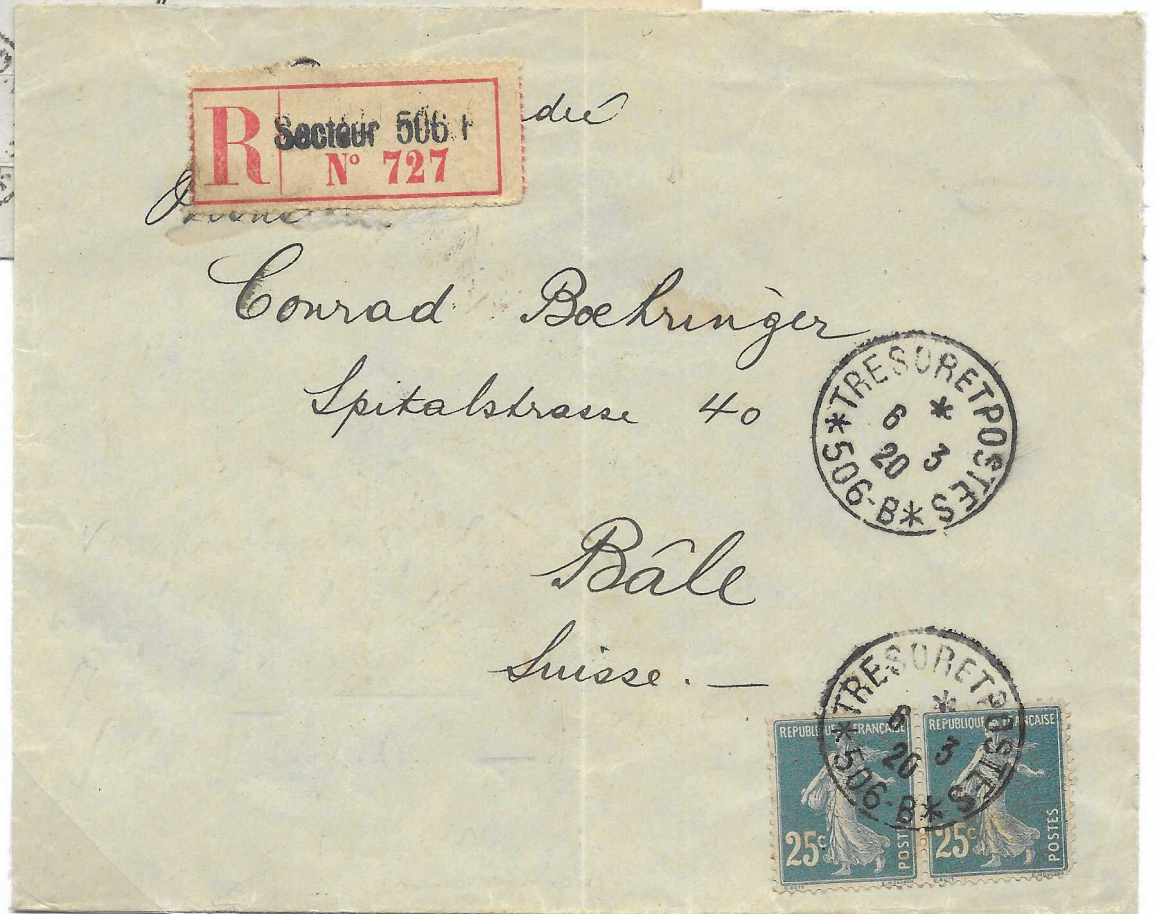 R Secteur 506
N° 727
Conrad Boehringer
Spitalstrasse 40
Bâle
Suisse. —
*TRESOR ET POSTES*
6 * 3
20
506-B
*TRESOR ET POSTES*
6 * 3
20
506-B
REPUBLIQUE FRANÇAISE
25c
POSTES
REPUBLIQUE FRANÇAISE
25c
POSTES